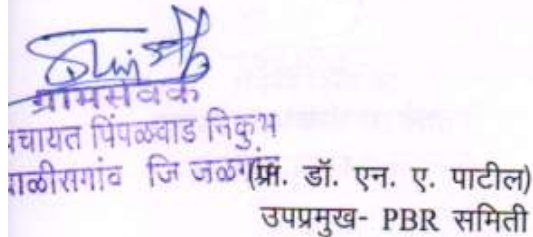 ग्रामसेवक
चायत पिंपळवाड निकुंभ
ाळीसगांव जि जळगाव
(प्रा. डॉ. एन. ए. पाटील)
उपप्रमुख- PBR समिती